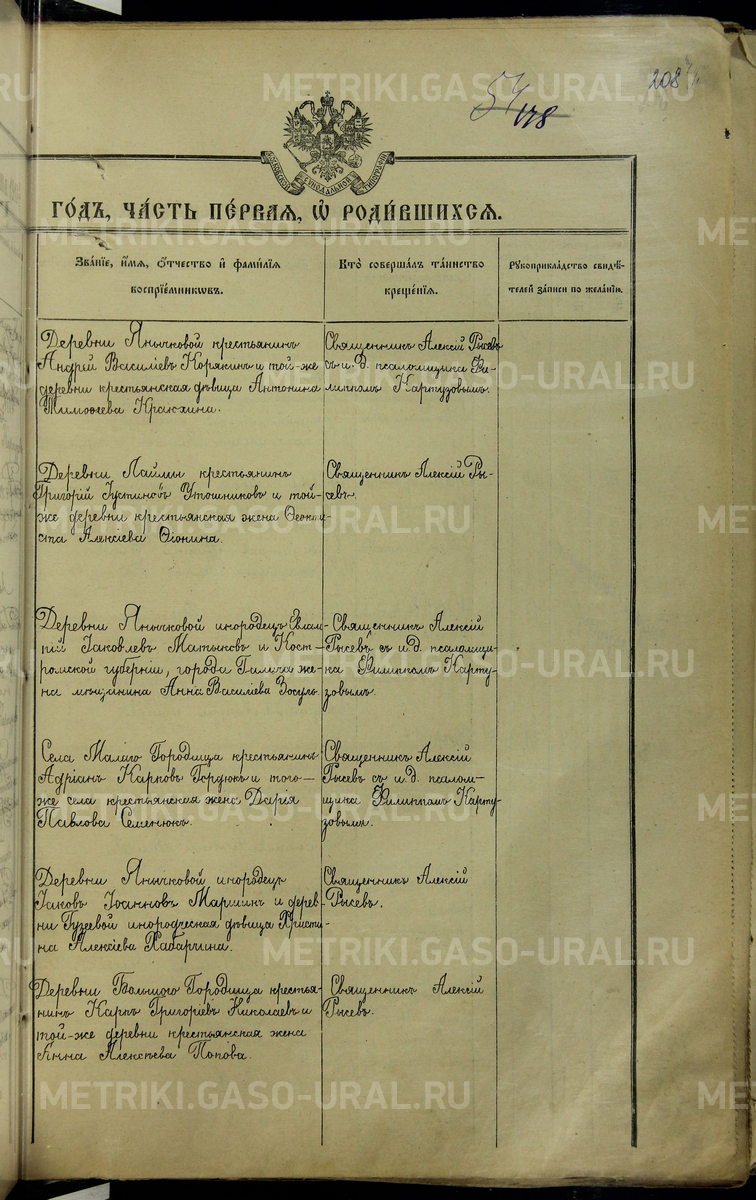 METRIKI.GASO-URAL.RU
54
178
208
МОСКОВСКОЙ СѴНОДАЛЬНОЙ ТИПОГРАФІИ
ГО́ДЪ, ЧА́СТЬ ПЕ́РВАЯ, Ѿ РОДИ́ВШИХСЯ.
Зва́нїе, и҆́мя, ѻ҆́тчество и҆ фами́лїя
воспрїе́мникѡвъ.
Кто̀ соверша́лъ та́инство
креще́нїя.
Рꙋкоприкла́дство свидѣ́-
телей за́писи по жела́нїю.
Деревни Янычковой крестьянинъ
Андрей Василіевъ Корякинъ и той-же
деревни крестьянская дѣвица Антонина
Тимоѳеева Краюхина.
Священникъ Алексій Рысевъ
съ и. д. псаломщика Фи-
липпомъ Картузовымъ.
METRIKI.GASO-URAL.RU
Деревни Лаймы крестьянинъ
Григорій Іустиновъ Утошниковъ и той-
же деревни крестьянская жена Ѳеокти-
ста Алексіева Ѳіонина.
Священникъ Алексій Ры-
севъ.
METRIKI.GASO-URAL.RU
Деревни Янычковой инородецъ Евлам-
пій Іаковлевъ Матыковъ и Кост-
ромской губерніи, города Галича же-
на мѣщанина Анна Василіева Зосулъ.
Священникъ Алексій
Рысевъ съ и. д. псаломщи-
ка Филиппомъ Карту-
зовымъ.
METRIKI.GASO-URAL.RU
Села Малаго Городища крестьянинъ
Адріанъ Карповъ Гордюкъ и того-
же села крестьянская жена Дарія
Павлова Семенюкъ.
Священникъ Алексій
Рысевъ съ и. д. псалом-
щика Филиппомъ Карту-
зовымъ.
METRIKI.GASO-URAL.RU
Деревни Янычковой инородецъ
Іаковъ Іоанновъ Маршинъ и дерев-
ни Гузеевой инородческая дѣвица Христи-
на Алексіева Хабарчина.
Священникъ Алексій
Рысевъ.
METRIKI.GASO-URAL.RU
Деревни Большого Городища крестья-
нинъ Карпъ Григоріевъ Николаевъ и
той-же деревни крестьянская жена
Анна Алексѣева Попова.
Священникъ Алексій
Рысевъ.
METRIKI.GASO-URAL.RU